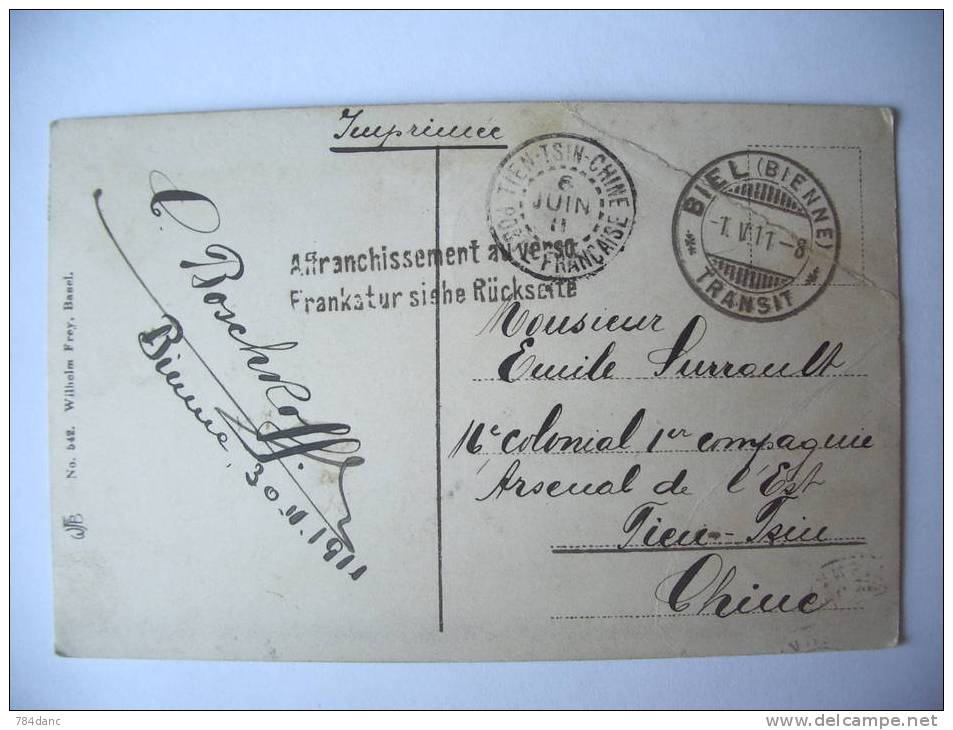 Imprimée
TIEN-TSIN-CHINE
6
JUIN
11
POSTE FRANÇAISE
BIEL (BIENNE)
-1. V.11-8
TRANSIT
Affranchissement au verso.
Frankatur siehe Rückseite
C. Boschkoff
Bienne, 30 IV. 1911
No. 542. Wilhelm Frey, Basel.
Monsieur
Emile Surrault
16e Colonial 1er compagnie
Arsenal de l'Est
Tien-Tsin
Chine
784danc
www.delcampe.net